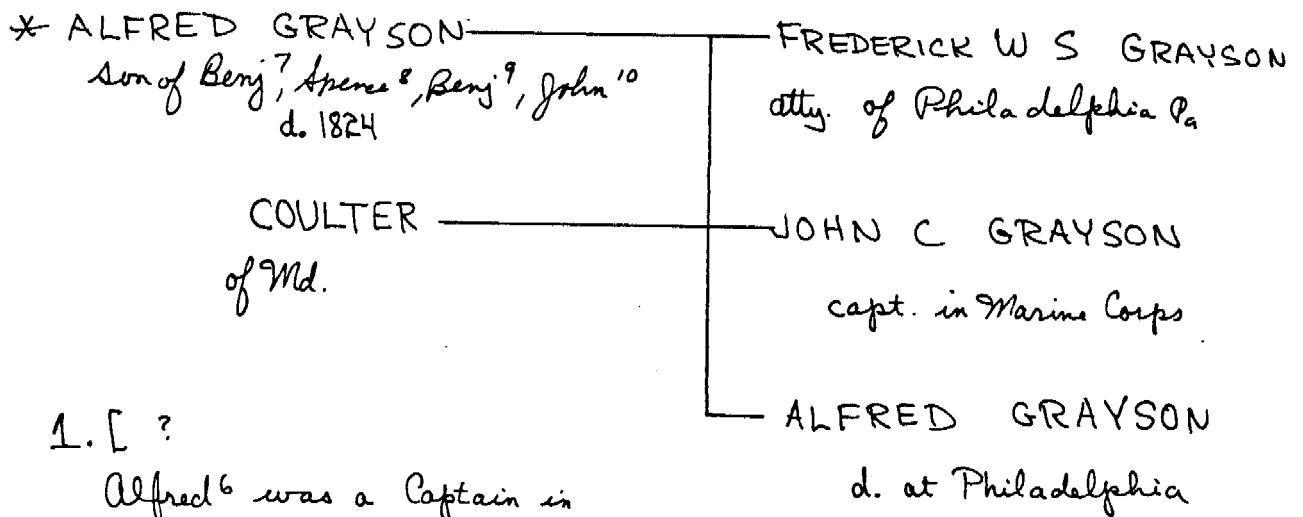 * ALFRED GRAYSON
son of Benj⁷, Spence⁸, Benj⁹, John¹⁰
d. 1824
COULTER
of Md.
1. [ ?
Alfred⁶ was a Captain in
FREDERICK W S GRAYSON
atty. of Philadelphia Pa
JOHN C GRAYSON
capt. in Marine Corps
ALFRED GRAYSON
d. at Philadelphia